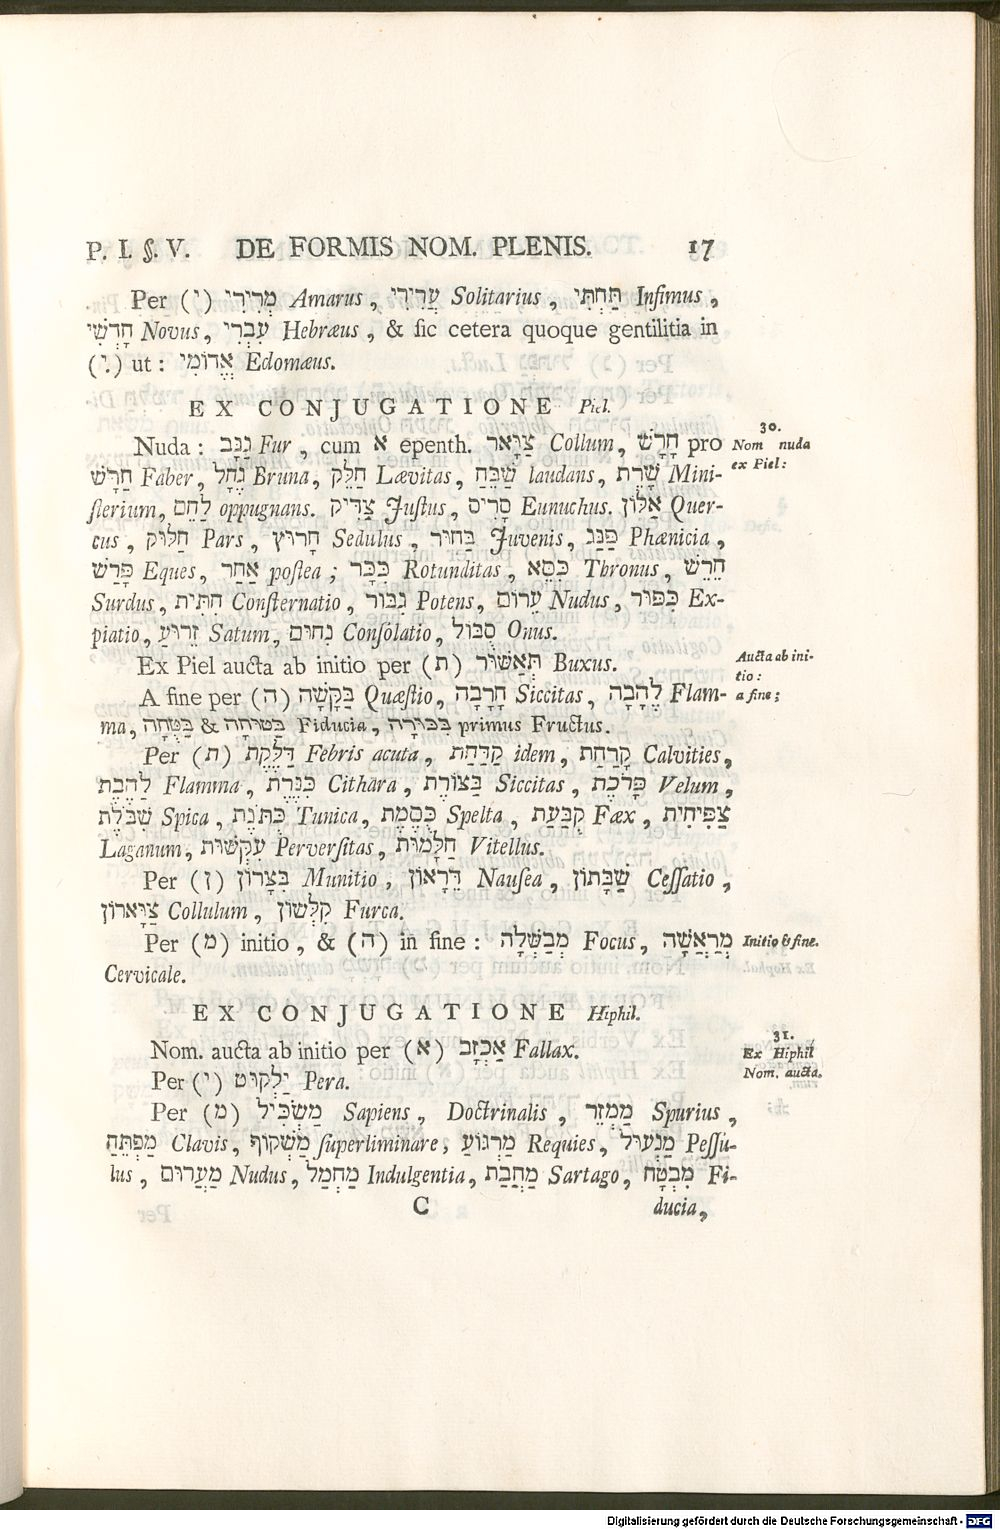 P. I. §. V. DE FORMIS NOM. PLENIS. 17
Per (י) מְרִירִי Amarus, עֲרִירִי Solitarius, תַּחְתִּי Infimus,
חָדְשִׁי Novus, עִבְרִי Hebræus, & sic cetera quoque gentilitia in
(.י) ut: אֱדוֹמִי Edomæus.
EX CONJUGATIONE Piel.
Nuda: גַנָּב Fur, cum א epenth. צַוָּאר Collum, חָרָשׁ pro
חַרָּשׁ Faber, נֶחָל Bruna, חַלֵּק Lævitas, שַׁבֵּחַ laudans, שָׁרֵת Mini-
sterium, לַחֵם oppugnans. צַדִּיק Justus, סָרִיס Eunuchus. אַלּוֹן Quer-
cus, חַלּוּק Pars, חָרוּץ Sedulus, בַּחוּר Juvenis, פַּנַּג Phænicia,
פָּרַשׁ Eques, אַחַר postea; כִּכָּר Rotunditas, כִּסֵּא Thronus, חֵרֵשׁ
Surdus, חִתִּית Consternatio, גִבּוֹר Potens, עֵרוֹם Nudus, כִּפּוּר Ex-
piatio, זֵרוּעַ Satum, נִחוּם Consolatio, סִבּוֹל Onus.
Ex Piel aucta ab initio per (ת) תְּאַשּׁוּר Buxus.
A fine per (ה) בַּקָּשָׁה Quæstio, חָרָבָה Siccitas, לֶהָבָה Flam-
ma, בַּטֻּחָה & בַּטּוּחָה Fiducia, בִּכּוּרָה primus Fructus.
Per (ת) דַּלֶּקֶת Febris acuta, קַדַּחַת idem, קָרַחַת Calvities,
לַהֶבֶת Flamma, כִּנֶּרֶת Cithara, בַּצּוֹרֶת Siccitas, פָּרֹכֶת Velum,
שִׁבֹּלֶת Spica, כְּתֹּנֶת Tunica, כֻּסֶּמֶת Spelta, קֻבַּעַת Fæx, צַפִּיחִית
Laganum, עִקְּשׁוּת Perversitas, חַלָּמוּת Vitellus.
Per (ן) בִּצָּרוֹן Munitio, דֵּרָאוֹן Nausea, שַׁבָּתוֹן Cessatio,
צַוָּארוֹן Collulum, קִלְּשׁוֹן Furca.
Per (מ) initio, & (ה) in fine: מְבַשְּׁלָה Focus, מְרַאֲשָׁה
Cervicale.
EX CONJUGATIONE Hiphil.
Nom. aucta ab initio per (א) אַכְזָב Fallax.
Per (י) יַלְקוּט Pera.
Per (מ) מַשְׂכִּיל Sapiens, Doctrinalis, מַמְזֵר Spurius,
מַפְתֵּחַ Clavis, מַשְׁקוֹף superliminare, מַרְגּוֹעַ Requies, מַנְעוּל Pessu-
lus, מַעֲרוּם Nudus, מַחְמַל Indulgentia, מַחֲבַת Sartago, מִבְטָח Fi-
C ducia,
30.
Nom nuda
ex Piel:
Aucta ab ini-
tio:
a fine;
Initio & fine.
31.
Ex Hiphil
Nom. aucta.
Digitalisierung gefördert durch die Deutsche Forschungsgemeinschaft - DFG